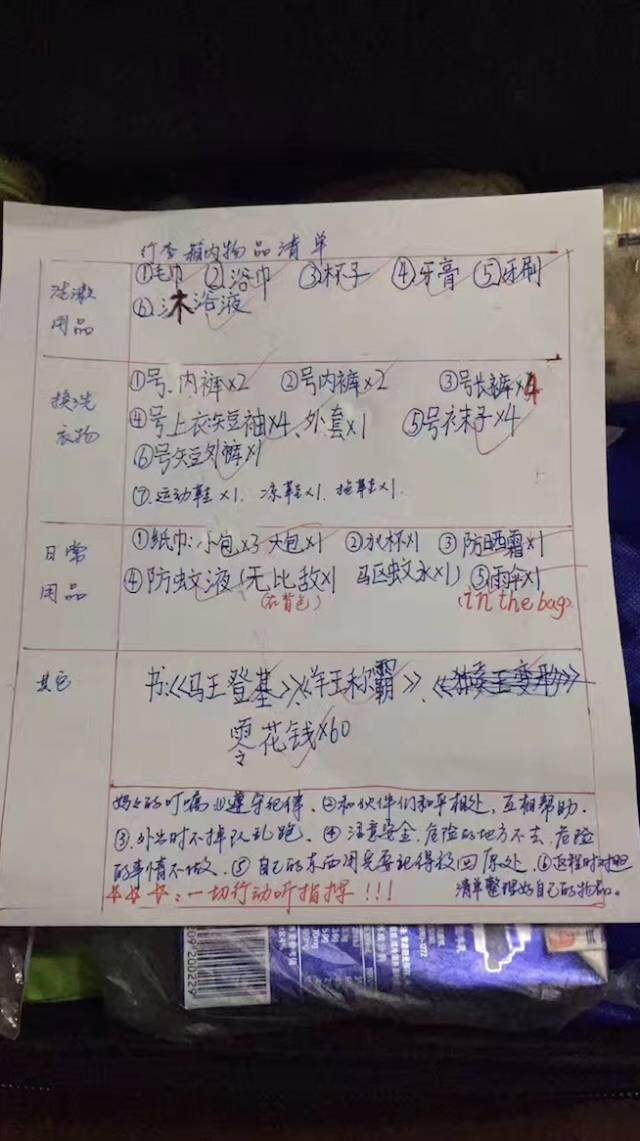 行李箱内物品清单
洗漱用品
①毛巾 ②浴巾 ③杯子 ④牙膏 ⑤牙刷
⑥沐浴液
换洗衣物
①号.内裤×2 ②号内裤×2 ③号长裤×4
④号上衣短袖×4、外套×1 ⑤号袜子×4
⑥号短外裤×1
⑦.运动鞋×1. 凉鞋×1. 拖鞋×1.
日常用品
①纸巾:小包×3 大包×1 ②水杯×1 ③防晒霜×1
④防蚊液(无比敌×1 驱蚊水×1) ⑤雨伞×1
(在背包) (in the bag)
其它
书:《马王登基》、《羊王称霸》、《独奏王变形》
零花钱×60
妈妈的叮嘱:①遵守纪律、②和伙伴们和平相处,互相帮助.
③.外出时不掉队乱跑. ④注意安全.危险的地方不去,危险
的事情不做. ⑤自己的东西用完要记得放回原处. ⑥返程时对照
清单整理好自己的物品.
☆☆☆:一切行动听指挥!!!
09 200229